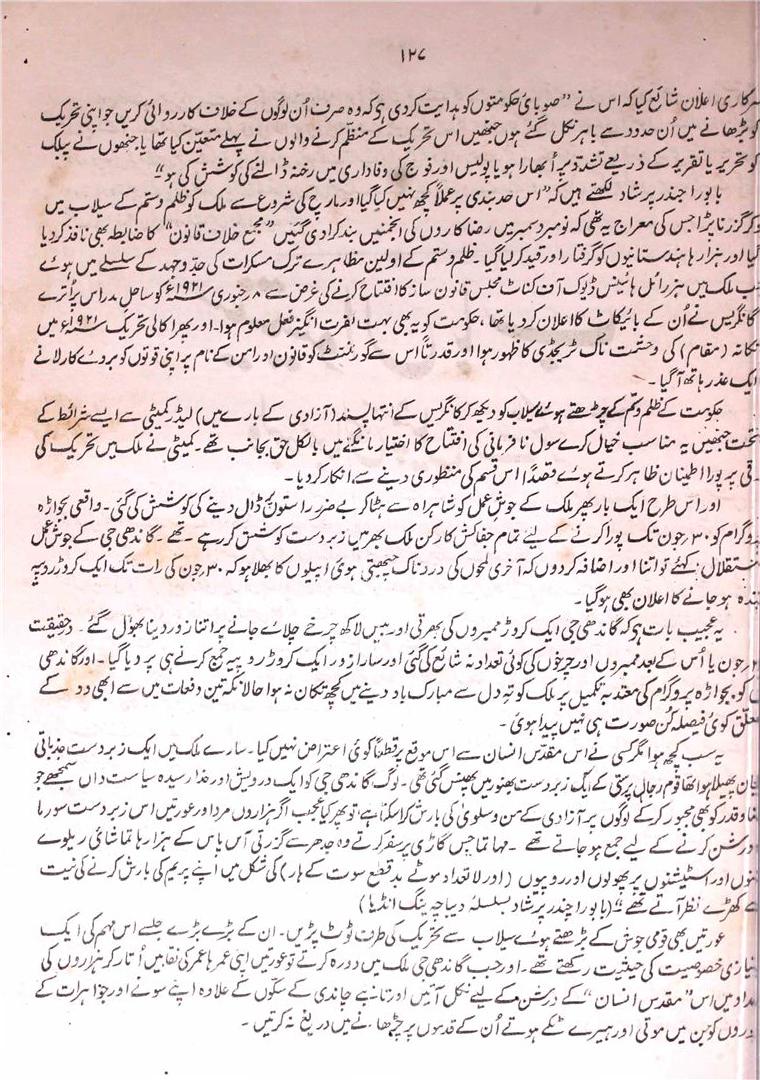 ۱۲۷
سرکاری اعلان شائع کیا کہ اس نے "صوبائی حکومتوں کو ہدایت کر دی ہے کہ وہ صرف اُن لوگوں کے خلاف کارروائی کریں جو اپنی تحریک
کو بڑھانے میں اُن حدود سے باہر نکل گئے ہوں جنھیں اس تحریک کے منظم کرنے والوں نے پہلے متعین کیا تھا یا جنھوں نے پبلک
کو تحریر یا تقریر کے ذریعے تشدد پر اُبھارا ہو یا پولیس اور فوج کی وفاداری میں رخنہ ڈالنے کی کوشش کی ہو"
بابو راجندر پرشاد لکھتے ہیں کہ "اس حد بندی پر عملاً کچھ نہیں کیا گیا اور مارچ کی شروع سے ملک کو ظلم و ستم کے سیلاب میں
گزرنا پڑا جس کی معراج یہ تھی کہ نومبر دسمبر میں رضاکاروں کی انجمنیں بند کرا دی گئیں "مجمع خلاف قانون" کا ضابطہ بھی نافذ کر دیا
گیا اور ہزارہا ہندستانیوں کو گرفتار اور قید کر لیا گیا۔ ظلم و ستم کے اولین مظاہرے ترک مسکرات کی جدوجہد کے سلسلے میں ہوئے
جب ملک میں ہز رائل ہائینس ڈیوک آف کناٹ مجلس قانون ساز کا افتتاح کرنے کی غرض سے ۸ جنوری ۱۹۲۱ء کو ساحل مدراس پر اُترے
کانگریس نے اُن کے بائیکاٹ کا اعلان کر دیا تھا، حکومت کو یہ بھی بہت نفرت انگیز فعل معلوم ہوا۔ اور پھر اکالی تحریک ۱۹۲۱ء میں
نکانہ (مقام) کی وحشت ناک ٹریجڈی کا ظہور ہوا اور قدرتاً اس سے گورنمنٹ کو قانون اور امن کے نام پر اپنی قوتوں کو بروئے کار لانے
ایک عذر ہاتھ آ گیا۔
حکومت کے ظلم و ستم کے چڑھتے ہوئے سیلاب کو دیکھ کر کانگریس کے انتہا پسند (آزادی کے بارے میں) لیڈر کمیٹی سے ایسے شرائط کے
تحت جنھیں یہ مناسب خیال کرے سول نافرمانی کی افتتاح کا اختیار مانگنے میں بالکل حق بجانب تھے۔ کمیٹی نے ملک میں تحریک کی
ترقی پر پورا اطمینان ظاہر کرتے ہوئے قصداً اس قسم کی منظوری دینے سے انکار کر دیا۔
اور اس طرح ایک بار پھر ملک کے جوش عمل کو شاہراہ سے ہٹا کر بے ضرر راستوں پر ڈال دینے کی کوشش کی گئی۔ واقعی بجواڑہ
پروگرام کو ۳۰ جون تک پورا کرنے کے لیے تمام جفاکش کارکن ملک بھر میں زبردست کوشش کر رہے تھے۔ گاندھی جی کے جوش عمل
استقلال کہئے تو اتنا اور اضافہ کردوں کہ آخری لمحوں کی دردناک چبھتی ہوئی اپیلوں کا بھلا ہو کہ ۳۰ جون کی رات تک ایک کروڑ روپیہ
چندہ ہو جانے کا اعلان بھی ہو گیا۔
یہ عجیب بات ہے کہ گاندھی جی ایک کروڑ ممبروں کی بھرتی اور بیس لاکھ چرخے چلائے جانے پر اتنا زور دینا بھول گئے۔ در حقیقت
جون یا اُس کے بعد ممبروں اور چرخوں کی کوئی تعداد نہ شائع کی گئی اور سارا زور ایک کروڑ روپیہ جمع کرنے ہی پر دیا گیا۔ اور گاندھی
کو بجواڑہ پروگرام کی معتدبہ تکمیل پر ملک کو تہ دل سے مبارک باد دینے میں کچھ تکان نہ ہوا حالانکہ تین دفعات میں سے ابھی دو کے
متعلق کوئی فیصلہ کن صورت ہی نہیں پیدا ہوئی۔
یہ سب کچھ ہوا مگر کسی نے اس مقدس انسان سے اس موقع پر قطعاً کوئی اعتراض نہیں کیا۔ سارے ملک میں ایک زبردست جذباتی
ہیجان پھیلا ہوا تھا قوم رجال پرستی کے ایک زبردست بھنور میں پھنس گئی تھی۔ لوگ گاندھی جی کو ایک درویش اور خدا رسیدہ سیاست داں سمجھے جو
قضا و قدر کو بھی مجبور کر کے لوگوں پر آزادی کے من و سلویٰ کی بارش کرا سکتا ہے، تو پھر کیا عجب اگر ہزاروں مرد اور عورتیں اس زبردست سورما
درشن کرنے کے لیے جمع ہو جاتے تھے۔ مہاتما جس گاڑی پر سفر کرتے وہ جدھر سے گزرتی آس پاس کے ہزارہا تماشائی ریلوے
اور اسٹیشنوں پر پھولوں اور روپیوں (اور لا تعداد موٹے بد قطع سوت کے ہار) کی شکل میں اپنے پریم کی بارش کرنے کی نیت
سے کھڑے نظر آتے تھے" (بابو راجندر پرشاد بسلسلہ دیباچہ ینگ انڈیا)
عورتیں بھی قومی جوش کے بڑھتے ہوئے سیلاب سے تحریک کی طرف ٹوٹ پڑیں۔ ان کے بڑے بڑے جلسے اس مہم کی ایک
امتیازی خصوصیت کی حیثیت رکھتے تھے۔ اور جب گاندھی جی ملک میں دورہ کرتے تو عورتیں اپنی عمر ہا عمر کی نقابیں اُتار کر ہزاروں کی
تعداد میں اس "مقدس انسان" کے درشن کے لیے نکل آئیں اور تانبے چاندی کے سکوں کے علاوہ اپنے سونے اور جواہرات کے
زیوروں کو جن میں موتی اور ہیرے ٹکے ہوتے اُن کے قدموں پر چڑھانے میں دریغ نہ کرتیں۔